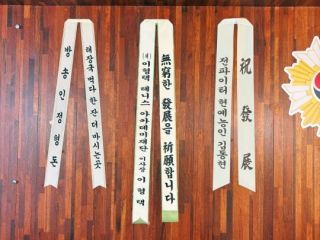 방송인 정형돈
해장국 먹다 한 잔 더 마시는 곳
(재)이형택 테니스 아카데미재단 이사장 이형택
無窮한 發展을 祈願합니다
전파이터 현예능인 김동현
祝發展